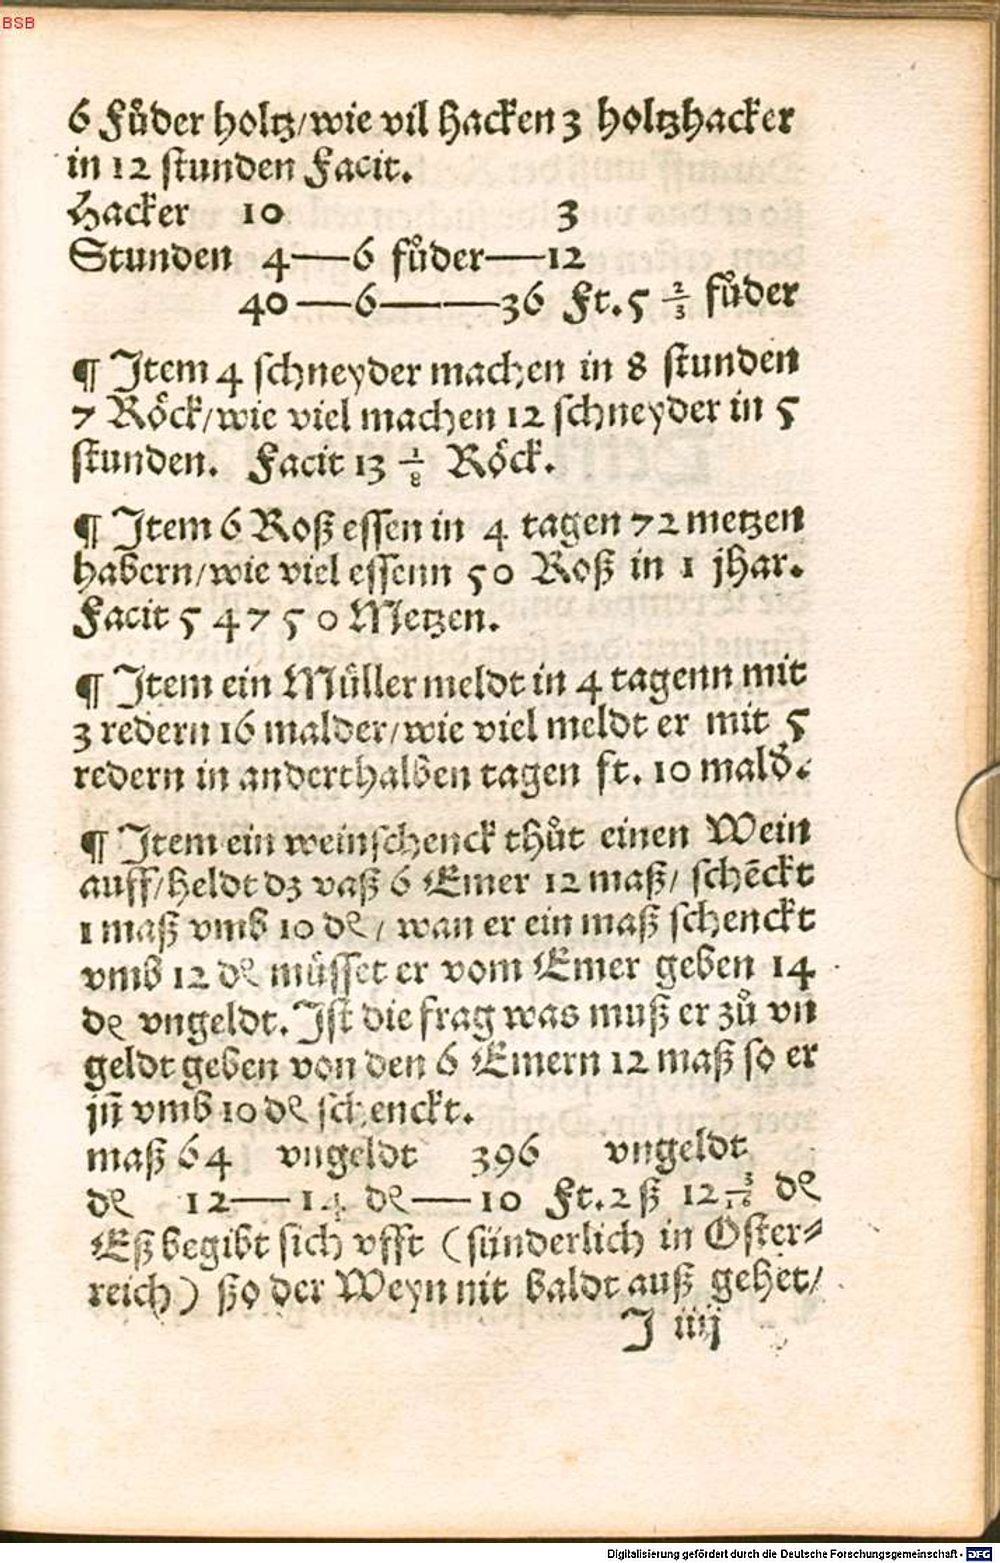 BSB
6 Fůder holtz/wie vil Hacken 3 holtzhacker
in 12 stunden Facit.
Hacker 10 3
Stunden 4—6 fůder—12
40—6———36 Ft. 5 2/3 fůder
¶ Item 4 schneyder machen in 8 stunden
7 Röck/wie viel machen 12 schneyder in 5
stunden. Facit 13 1/8 Röck.
¶ Item 6 Roß essen in 4 tagen 72 metzen
habern/wie viel essenn 50 Roß in 1 jhar.
Facit 5 4 7 5 0 Metzen.
¶ Item ein Müller meldt in 4 tagenn mit
3 redern 16 malder/wie viel meldt er mit 5
redern in anderthalben tagen ft. 10 mald̃.
¶ Item ein weinschenck thůt einen Wein
auff/heldt dz vaß 6 Emer 12 maß/ schẽckt
1 maß vmb 10 d₰/ wan er ein maß schenckt
vmb 12 d₰ müsset er vom Emer geben 14
d₰ vngeldt. Ist die frag was muß er zů vn
geldt geben von den 6 Emern 12 maß so er
jn̄ vmb 10 d₰ schenckt.
maß 64 vngeldt 396 vngeldt
d₰ 12—14 d₰—10 Ft. 2 ß 12 3/16 d₰
Eß begibt sich vfft (sünderlich in Öster⸗
reich) ßo der Weyn nit baldt auß gehet/
J iiij
Digitalisierung gefördert durch die Deutsche Forschungsgemeinschaft - DFG